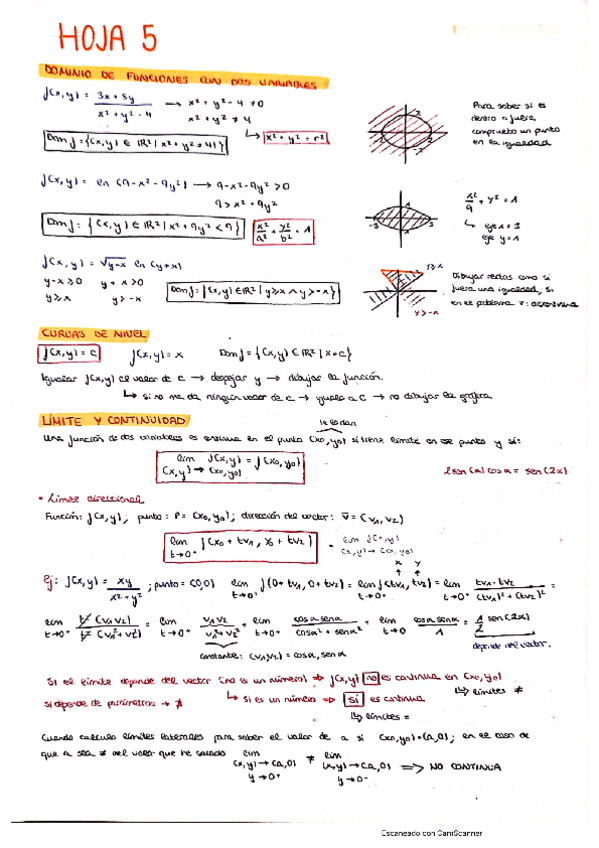 HOJA 5
DOMINIO DE FUNCIONES CON DOS VARIABLES
f(x,y) = 3x+5y / x²+y²-4 → x²+y²-4 ≠ 0
x²+y² ≠ 4
↳ x²+y² = r²
Dom f = {(x,y) ∈ IR² | x²+y² ≠ 4}
2
-2
Para saber si es
dentro o fuera,
compruebo un punto
en la igualdad
f(x,y) = ln (9-x²-9y²) → 9-x²-9y² > 0
9 > x²+9y²
Dom f: {(x,y) ∈ IR² | x²+9y² < 9}
x²/a² + y²/b² = 1
-3
3
x²/9 + y² = 1
↳ eje x = 3
eje y = 1
f(x,y) = √y-x ln (y+x)
y-x ≥ 0 y+x > 0
y ≥ x y > -x
Dom f: {(x,y) ∈ IR² | y ≥ x ∧ y > -x}
y ≥ x
y > -x
Dibujar rectas como si
fuera una igualdad, si
en el problema
CURVAS DE NIVEL
f(x,y) = c f(x,y) = x Dom f = {(x,y) ∈ IR² | x = c}
Igualar f(x,y) al valor de c → despejar y → dibujar la función.
↳ si no me da ningún valor de c → igualo a C → no dibujar la gráfica
LÍMITE Y CONTINUIDAD
te lo dan
Una función de dos variables es continua en el punto (x0,y0) si tiene límite en ese punto y si:
lim f(x,y) = f(x0,y0)
(x,y) → (x0,y0)
2 sen(α) cos α = sen(2α)
• Límite direccional
Función: f(x,y); punto: P = (x0,y0); dirección del vector: v = (v1,v2)
lim f(x0 + tv1, y0 + tv2) = lim f(x,y)
t→0⁺ (x,y) → (x0,y0)
x y
Ej: f(x,y) = xy / x²+y² ; punto = (0,0) lim f(0+tv1, 0+tv2) = lim f(tv1, tv2) = lim tv1·tv2 / (tv1)²+(tv2)² =
t→0⁺ t→0⁺ t→0⁺
lim t²(v1v2) / t²(v1²+v2²) = lim v1v2 / v1²+v2² = lim cosα senα / cosα²+senα² = lim cosα senα / 1 = 1/2 sen(2α)
t→0⁺ t→0⁺ t→0⁺ t→0
constante: (v1,v2) = cosα, senα
depende del vector.
Si el límite depende del vector (no es un número) ⇒ f(x,y) no es continua en (x0,y0)
↳ límites ≠
si depende de parámetros → ∄ ↳ si es un número ⇒ SÍ es continua
↳ límites =
Cuando calculo límites laterales para saber el valor de a si (x0,y0) = (a,0); en el caso de
que a sea ≠ del valor que he sacado lim ≠ lim
(x,y) → (a,0) (x,y) → (a,0) ⇒ NO CONTINUA
y → 0⁺ y → 0⁻
Escaneado con CamScanner